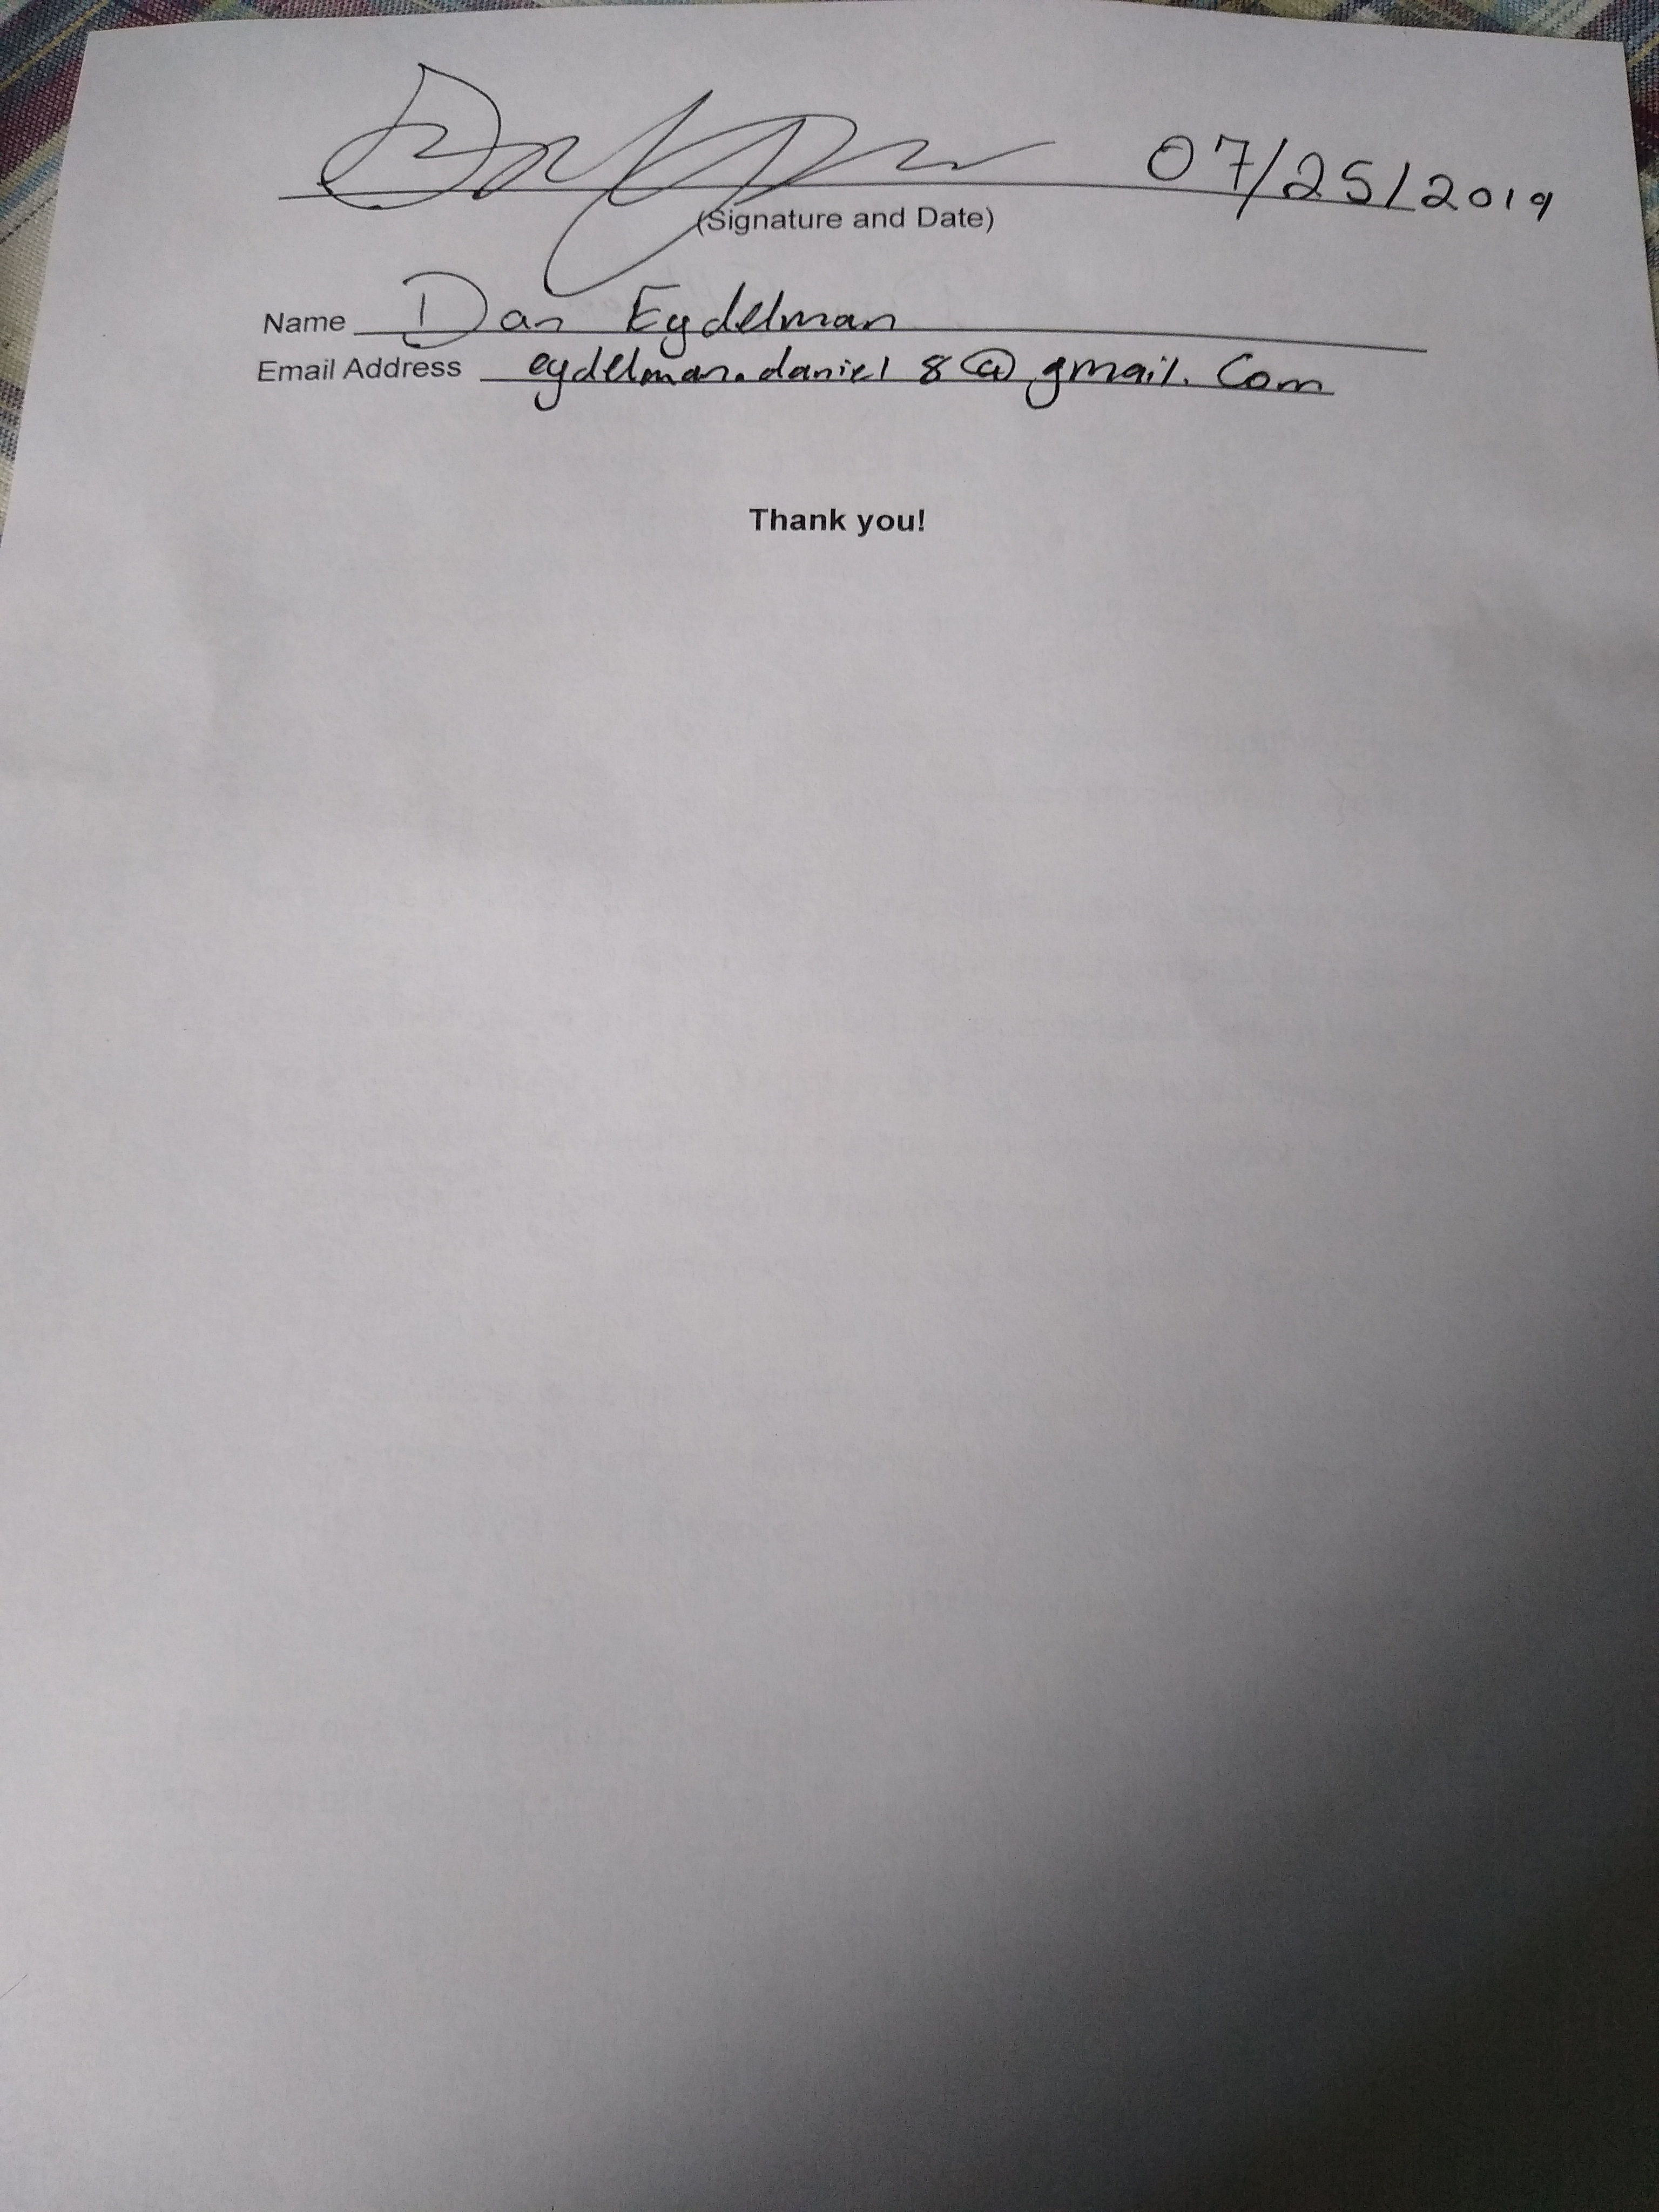 07/25/2019
(Signature and Date)
Name Dan Eydelman
Email Address eydelman.daniel8@gmail.com
Thank you!